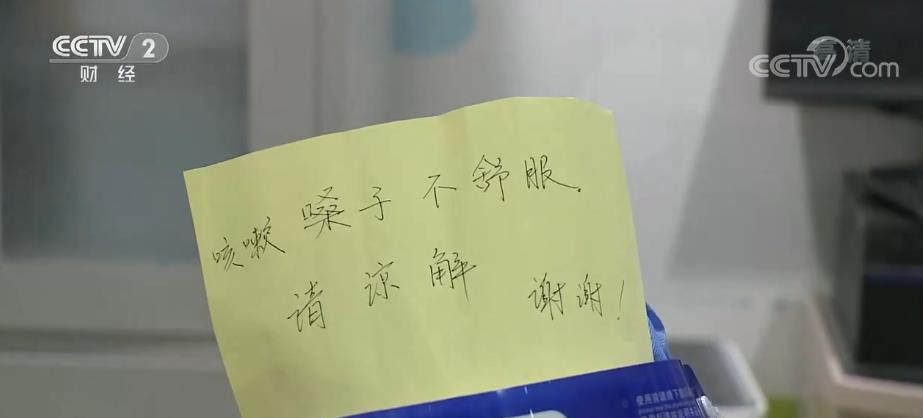 CCTV 2
财经
高清
CCTV.com
咳嗽 嗓子不舒服.
请谅解 谢谢!